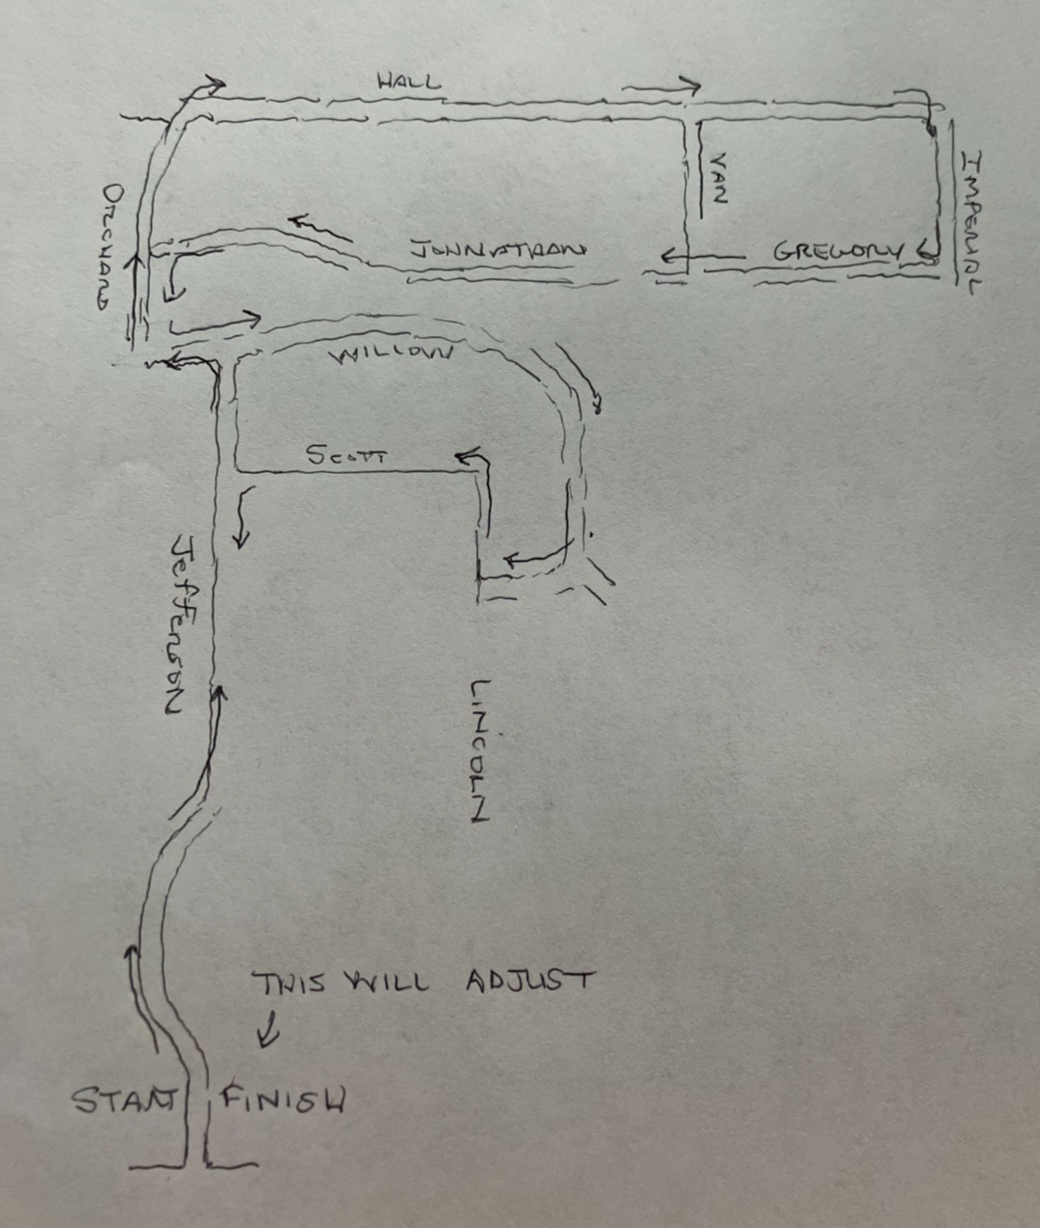 HALL
VAN
IMPERIAL
ORCHARD
JOHNATHAN
GREGORY
WILLOW
SCOTT
JEFFERSON
LINCOLN
THIS WILL ADJUST
START FINISH